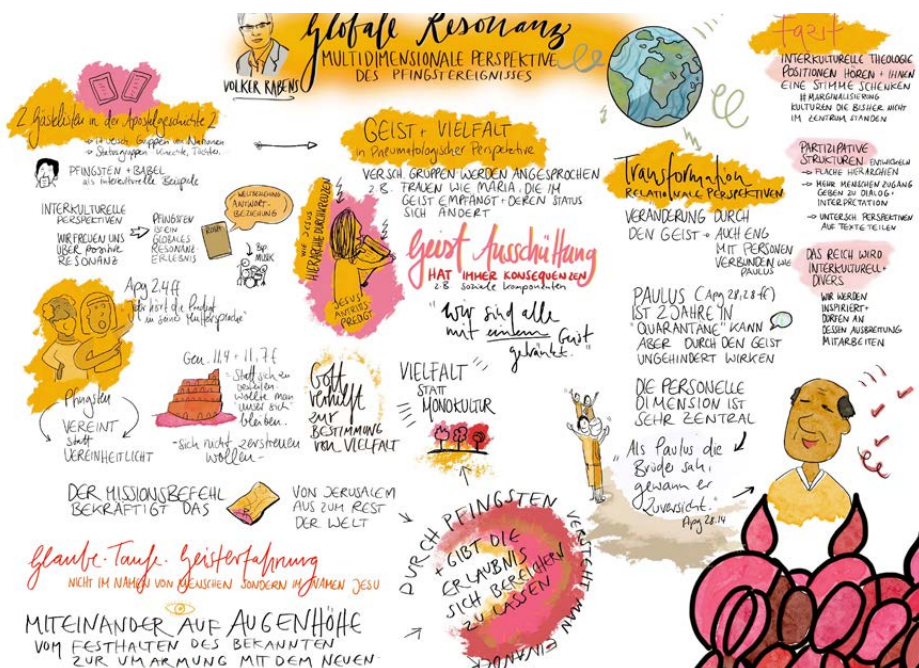 Globale Resonanz
MULTIDIMENSIONALE PERSPEKTIVE
DES PFINGSTEREIGNISSES
VOLKER RABENS
2 Gästelisten in der Apostelgeschichte 2
→ versch. Gruppen von Nationen
→ Statusgruppen Knechte, Töchter
PFINGSTEN + BABEL
als interkulturelle Beispiele
INTERKULTURELLE
PERSPEKTIVEN
WIR FREUEN UNS
ÜBER positive
RESONANZ
→ PFINGSTEN
IST EIN
GLOBALES
RESONANZ
ERLEBNIS
WELTBEZIEHUNG
ANTWORT-
BEZIEHUNG
ROSA
Bsp.
MUSIK
Apg 2,4ff
in seiner Muttersprache"
Pfingsten
VEREINT
statt
VEREINHEITLICHT
Gen. 11,4 + 11,7f
"Statt sich zu
verteilen
wollte man
unter sich
bleiben.
-sich nicht zerstreuen
wollen-
Gott
verhilft
zur
BESTIMMUNG
von VIELFALT
DER MISSIONSBEFEHL
BEKRÄFTIGT DAS
VON JERUSALEM
AUS ZUM REST
DER WELT
Glaube. Taufe. Geisterfahrung
NICHT IM NAMEN VON MENSCHEN SONDERN IM NAMEN JESU
MITEINANDER AUF AUGENHÖHE
VOM FESTHALTEN DES BEKANNTEN
ZUR UMARMUNG MIT DEM NEUEN
GEIST + VIELFALT
in Pneumatologischer Perspektive
VERSCH. GRUPPEN WERDEN ANGESPROCHEN
z.B. FRAUEN WIE MARIA, DIE IM
GEIST EMPFÄNGT + DEREN STATUS
SICH ÄNDERT
WIE JESUS
HIERARCHIE DURCHKREUZEN
JESUS
ANTRITTS
PREDIGT
Geist Ausschüttung
HAT IMMER KONSEQUENZEN
z.B. soziale Komponenten
"Wir sind alle
mit einem Geist
getränkt."
VIELFALT
STATT
MONOKULTUR
DURCH PFINGSTEN VERSTEHT MAN EINANDER
+ GIBT DIE
ERLAUBNIS
SICH BEREICHERN
ZU LASSEN
Transformation
RELATIONALE PERSPEKTIVEN
VERÄNDERUNG DURCH
DEN GEIST → AUCH ENG
MIT PERSONEN
VERBUNDEN WIE
PAULUS
PAULUS (Apg 28, 28ff)
IST 2 JAHRE IN
"QUARANTÄNE" KANN
ABER DURCH DEN GEIST
UNGEHINDERT WIRKEN
DIE PERSONELLE
DIMENSION IST
SEHR ZENTRAL
"Als Paulus die
Brüder sah,
gewann er
Zuversicht."
Apg 28.14
Fazit
INTERKULTURELLE THEOLOGIE
POSITIONEN HÖREN + IHNEN
EINE STIMME SCHENKEN
# MARGINALISIERUNG
KULTUREN DIE BISHER NICHT
IM ZENTRUM STANDEN
PARTIZIPATIVE
STRUKTUREN ENTWICKELN
→ FLACHE HIERARCHIEN
→ MEHR MENSCHEN ZUGANG
GEBEN ZU DIALOG +
INTERPRETATION
→ UNTERSCH PERSPEKTIVEN
AUF TEXTE TEILEN
DAS REICH WIRD
INTERKULTURELL +
DIVERS
WIR WERDEN
INSPIRIERT +
DÜRFEN AN
DESSEN AUSBREITUNG
MITARBEITEN